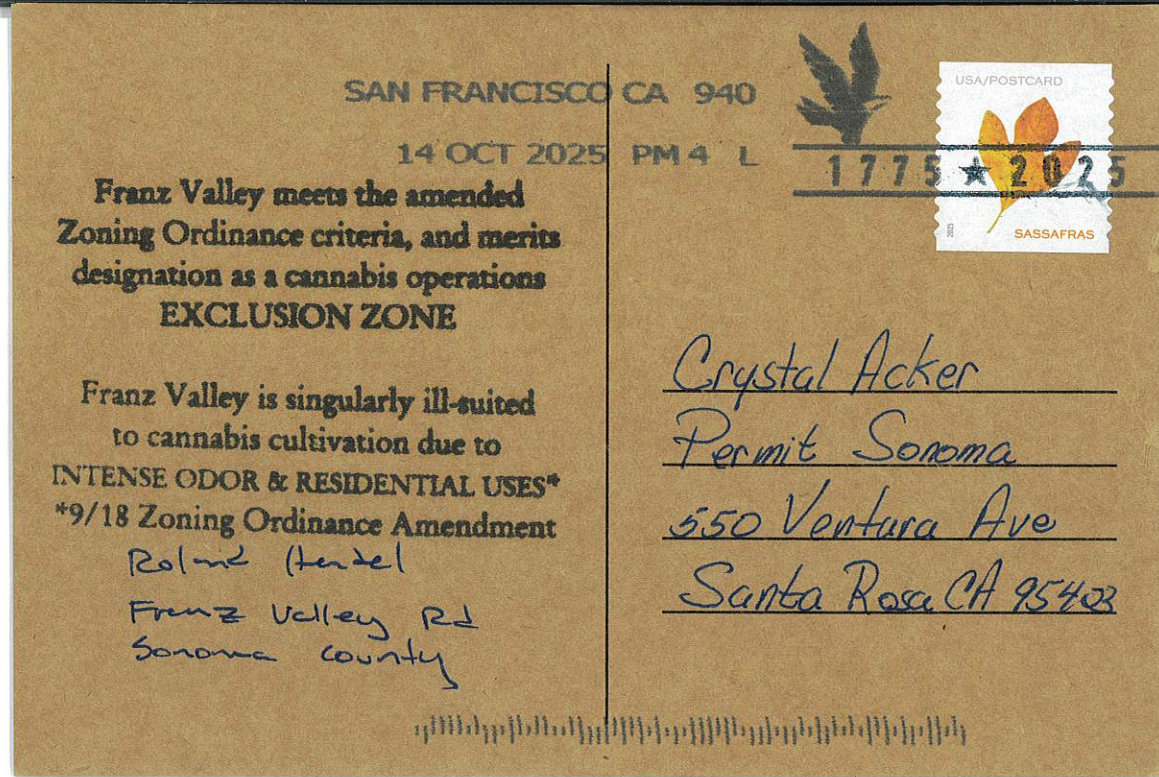 SAN FRANCISCO CA 940
14 OCT 2025 PM 4 L
1775 ★ 2025
USA/POSTCARD
2025
SASSAFRAS
Franz Valley meets the amended
Zoning Ordinance criteria, and merits
designation as a cannabis operations
EXCLUSION ZONE
Franz Valley is singularly ill-suited
to cannabis cultivation due to
INTENSE ODOR & RESIDENTIAL USES*
*9/18 Zoning Ordinance Amendment
Roland Hendel
Franz Valley Rd
Sonoma County
Crystal Acker
Permit Sonoma
550 Ventura Ave
Santa Rosa CA 95403